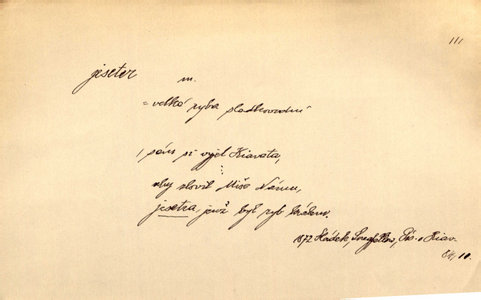 111
jeseter m.
= velká ryba sladkovodní
sám si vyjel Hiavata,
aby slovil Miše Námu,
jesetra jenž byl ryb králem.
1872 Hádek, Longfellow, Pís. o Hiav.
10.